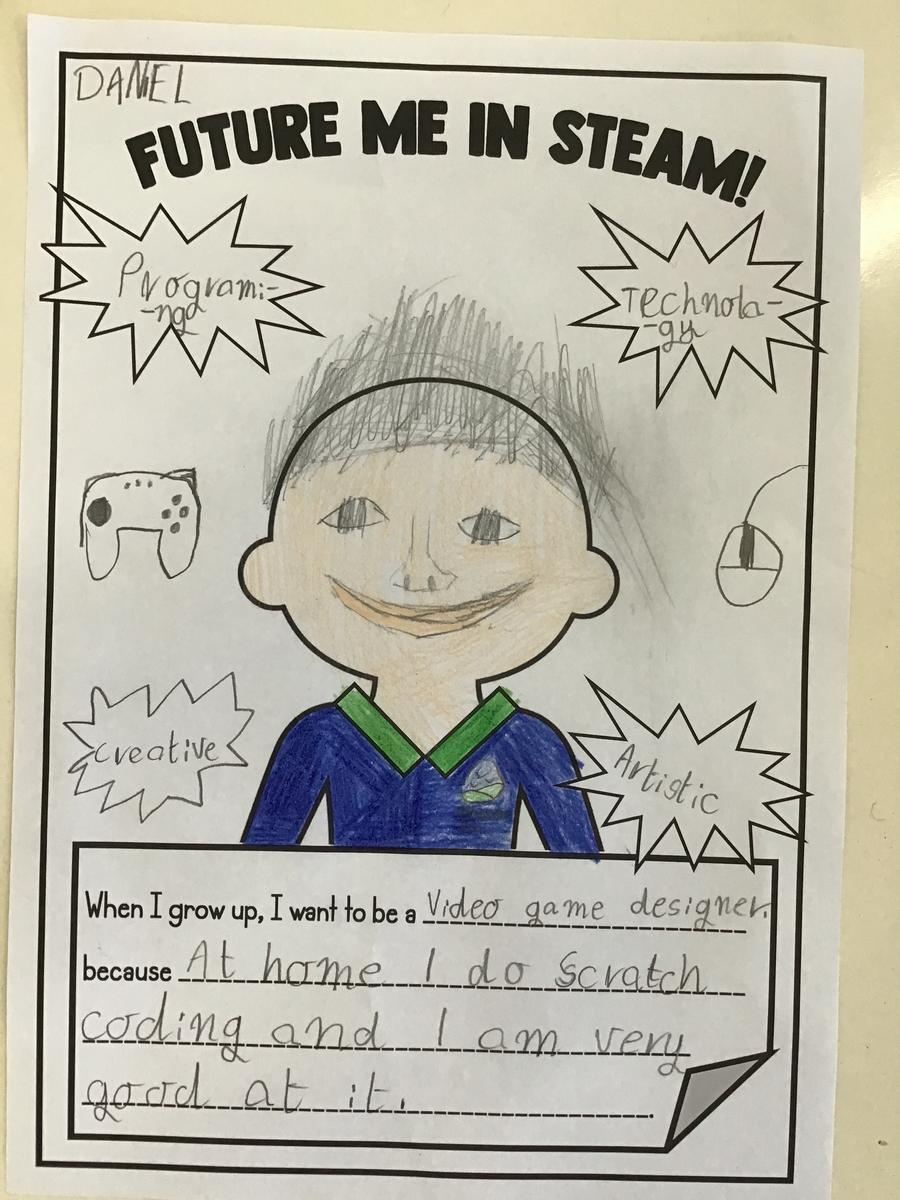 DANIEL
FUTURE ME IN STEAM!
Programi-
-ng
Technola-
-gy
creative
Artistic
When I grow up, I want to be a Video game designer.
because At home I do Scratch
coding and I am very
good at it.